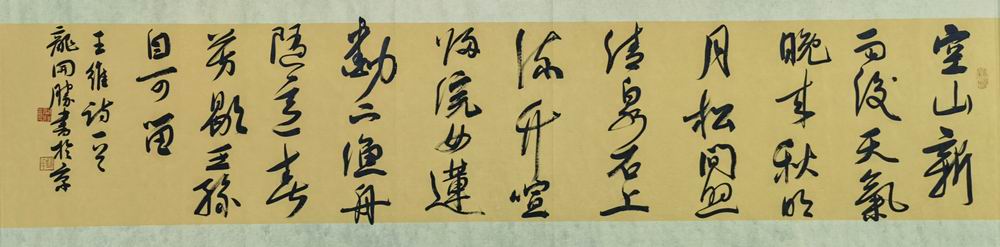 空山新
雨後天氣
晚來秋明
月松間照
清泉石上
流竹喧
歸浣女蓮
動下漁舟
隨意春
芳歇王孫
自可留
王維詩一首
龍開勝書於京